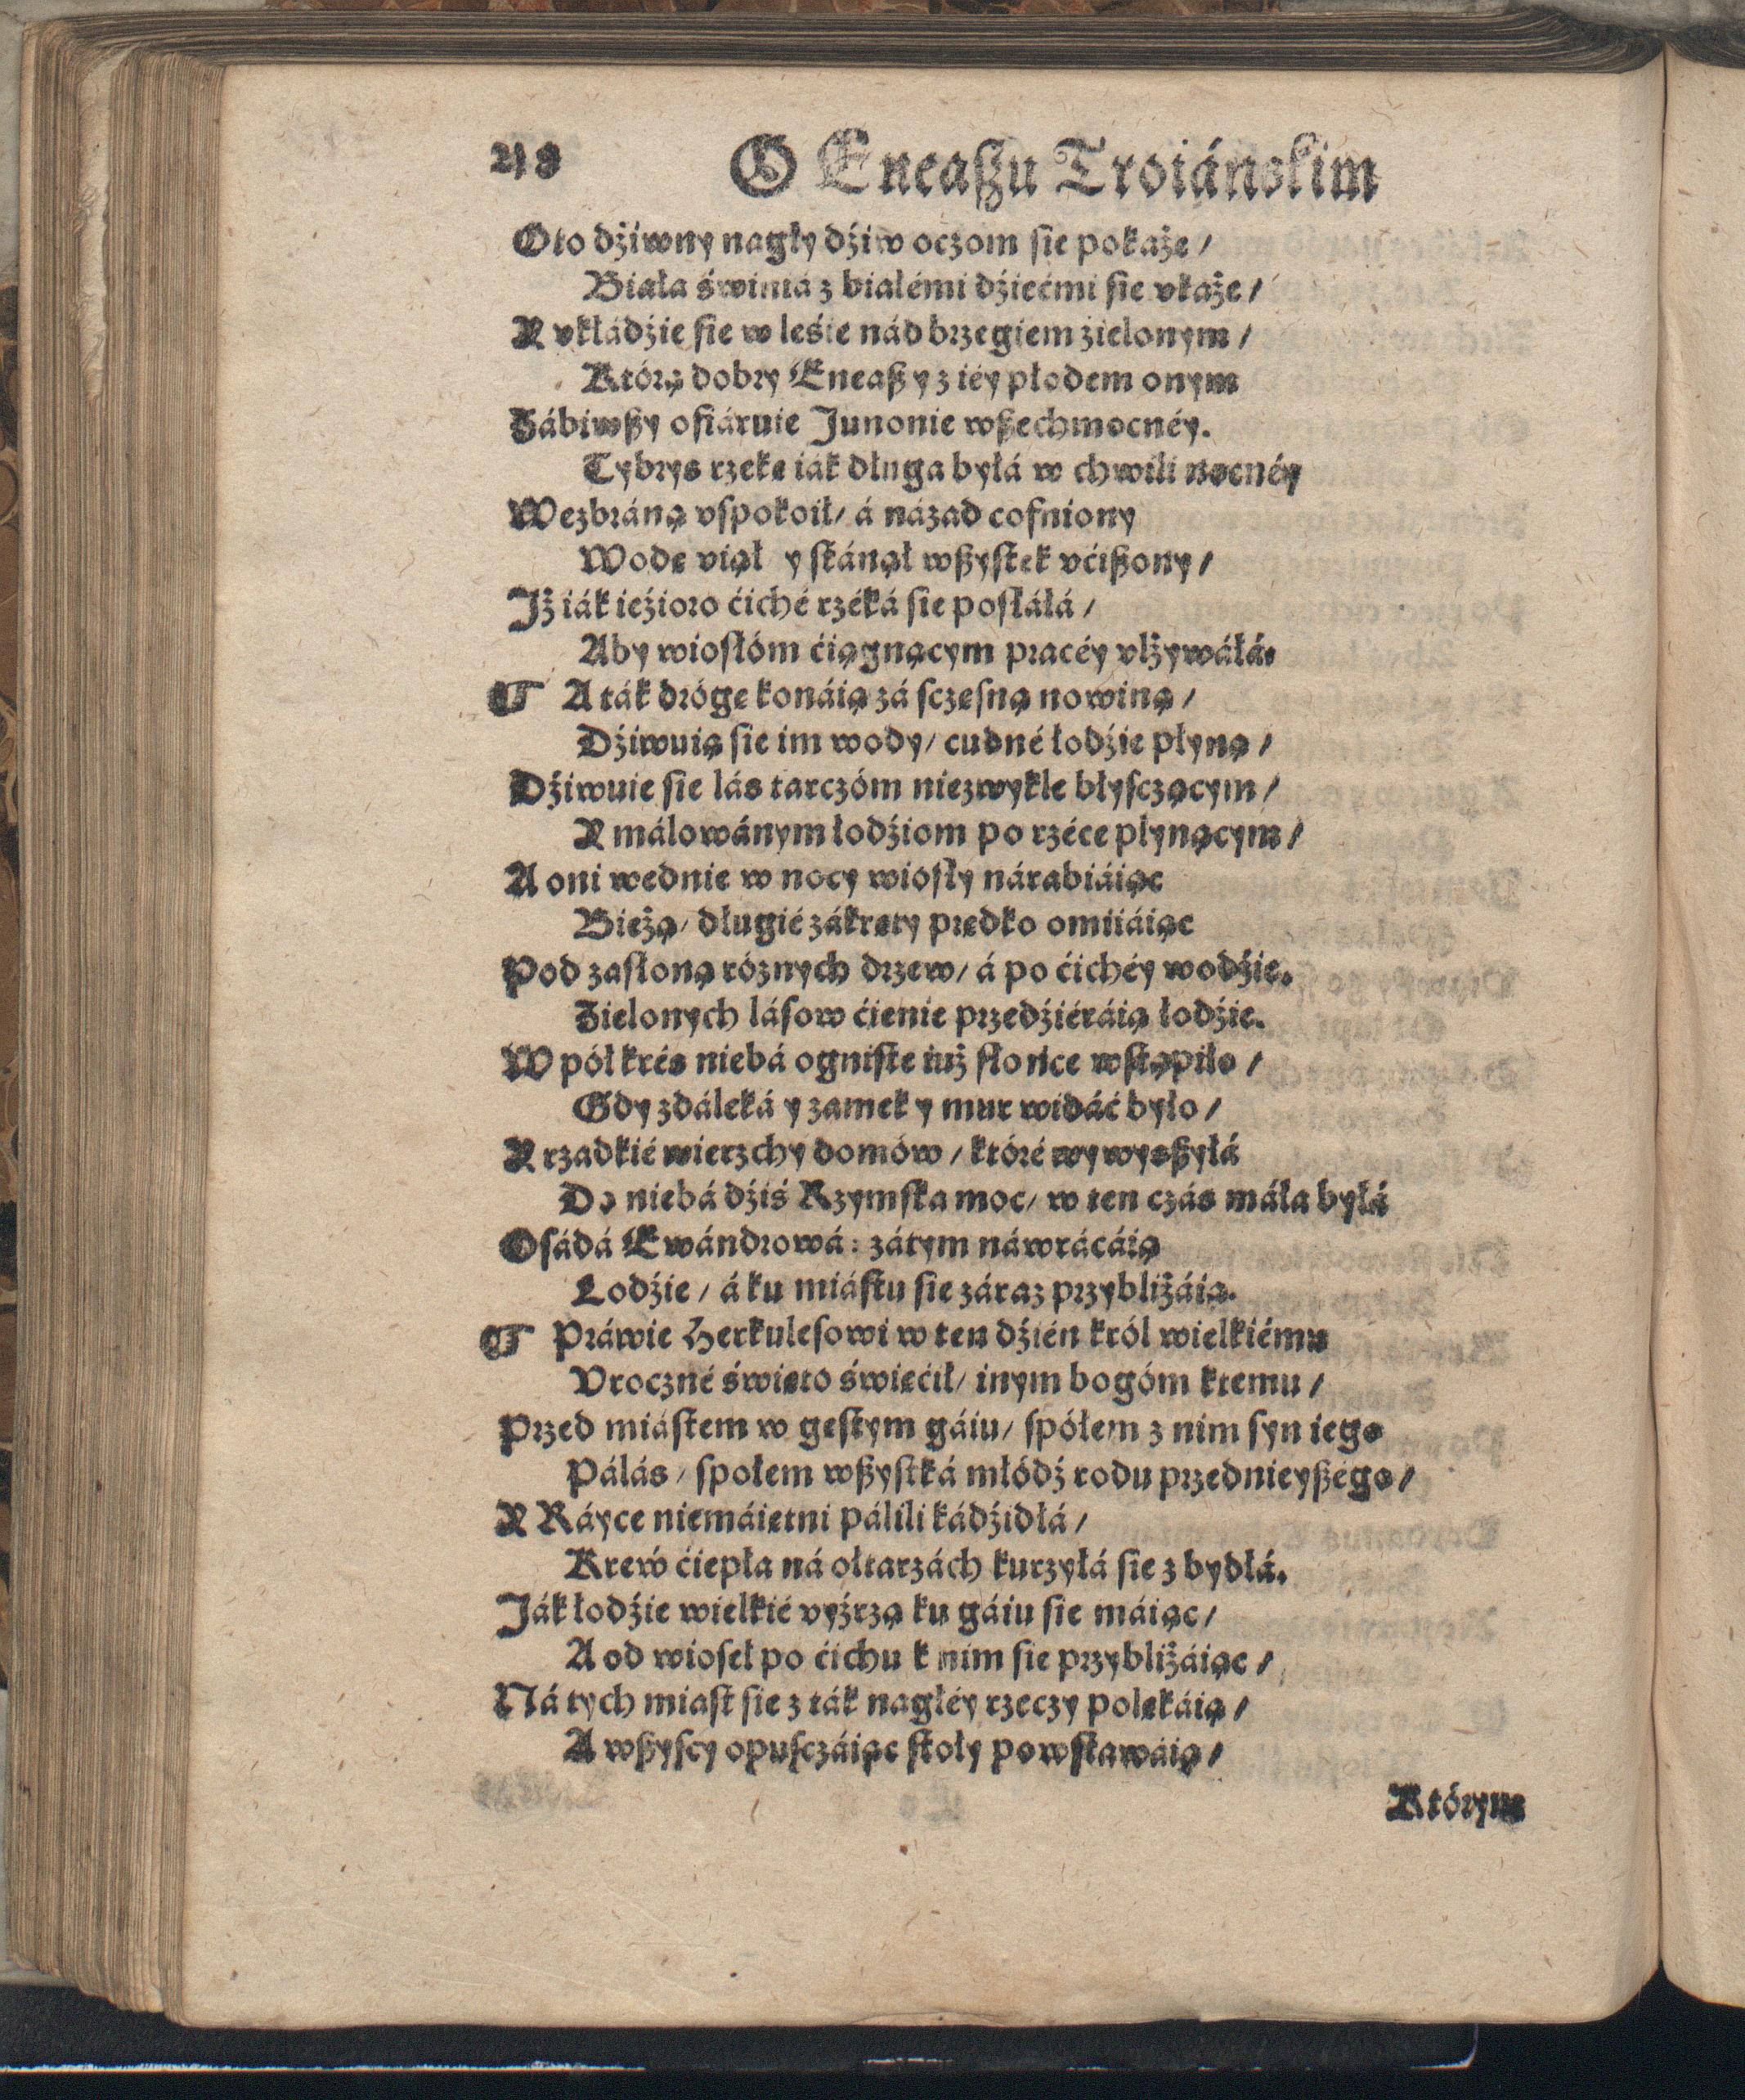 218 O Eneaszu Troiánskim
Oto dźiwny nagły dźiw oczom sie pokaże /
Biała świnia z białémi dźiećmi sie vkaże /
Y vkłádźie sie w leśie nád brzegiem źielonym /
Którą dobry Eneasz y z iéy płodem onym
Zábiwszy ofiáruie Junonie wszechmocnéy.
Tybrys rzekę iák długa byłá w chwili nocnéy
Wezbráną vspokoił / á názad cofniony
Wodę viął y stánął wszystek vćiszony /
Jż iák ieźioro ćiché rzéká sie posłáłá /
Aby wiosłóm ćiągnącym pracéy vlżywáłá.
A ták drógę konáią zá sczęsną nowiną /
Dźiwuią sie im wody / cudné łodźie płyną /
Dźiwuie sie lás tarczóm niezwykle błysczącym /
Y málowánym łodźiom po rzéce płynącym /
A oni wednie w nocy wiosły nárabiáiąc
Bieżą / długié zákręty prędko omiiáiąc
Pod zasłoną róznych drzew / á po ćichéy wodźie.
Zielonych lásow ćienie przedźiéráią łodźie.
W pół krés niebá ogniste iuż słońce wstąpiło /
Gdy zdáleká y zamek y mur widáć było /
Y rzadkié wierzchy domów / któré wywyszszyłá
Do niebá dźiś Rzymska moc / w ten czás máła byłá
Osádá Ewándrowá: zátym náwrácáią
Lodźie / á ku miástu sie záraz przybliżáią.
Práwie Herkulesowi w ten dźién król wielkiému
Vroczné święto święćił / inym bogóm ktemu /
Przed miástem w gęstym gáiu / spółem z nim syn iego
Pálás / społem wszystká młódź rodu przednieyszégo /
Y Ráyce niemáiętni pálili kádźidłá /
Krew ćiepła ná ołtarzách kurzyłá sie z bydłá.
Ják łodźie wielkié vyźrzą ku gáiu sie máiąc /
A od wioseł po ćichu k nim sie przybliżáiąc /
Ná tych miast sie z ták nagłéy rzeczy polękáią /
A wszyscy opusczáiąc stoły powstawáią /
Którym